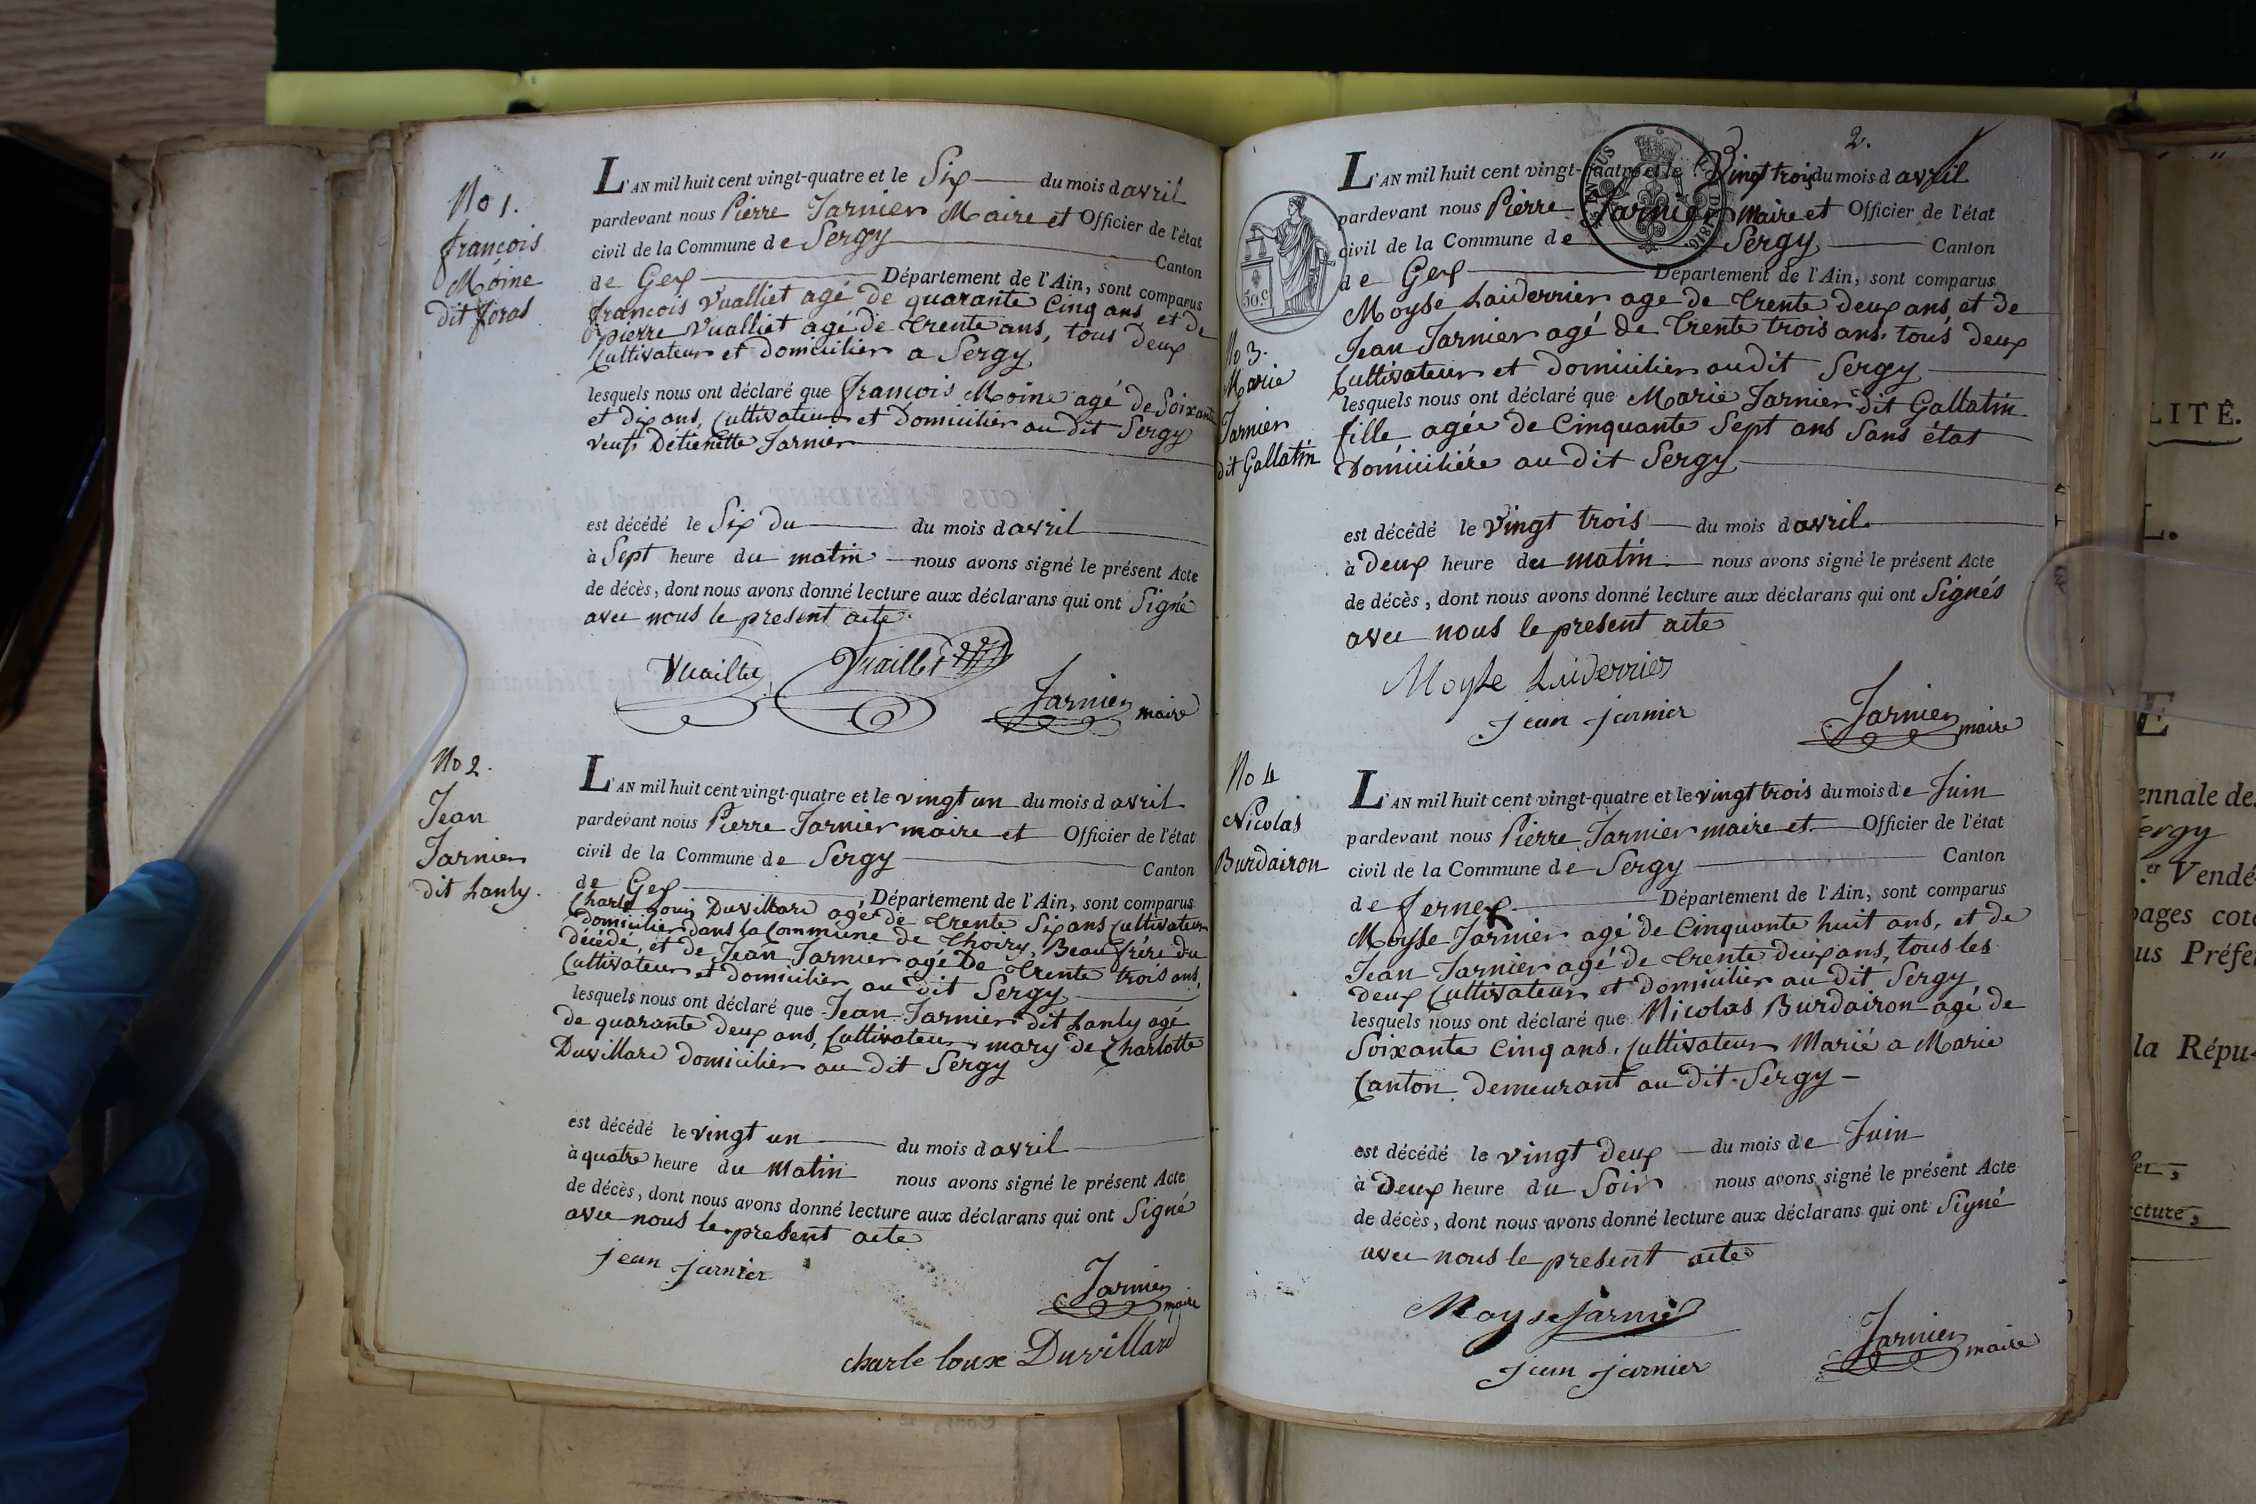 No 1.
françois
Moine
dit foras
L'AN mil huit cent vingt-quatre et le Six du mois d avril
pardevant nous Pierre Jarnier Maire et Officier de l'état
civil de la Commune de Sergy Canton
de Gex Département de l'Ain, sont comparus
françois Vualliet agé de quarante Cinq ans et de
pierre Vualliet agé de trente ans, tous deux
Cultivateur et domicilier a Sergy
lesquels nous ont déclaré que françois Moine agé de Soixante
et dix ans, Cultivateur et Domicilier au dit Sergy
veuf Détienette Jarnier
est décédé le Six du du mois d avril
à Sept heure du matin nous avons signé le présent Acte
de décès, dont nous avons donné lecture aux déclarans qui ont Signé
avec nous le present acte
Jarnier maire
No 2.
Jean
Jarnier
dit Lanly.
L'AN mil huit cent vingt-quatre et le vingt un du mois d avril
pardevant nous Pierre Jarnier maire et Officier de l'état
civil de la Commune de Sergy Canton
de Gex Département de l'Ain, sont comparus
Charle Louis Duvillard agé de trente Six ans Cultivateur
domicilier dans la Commune de Thoiry, Beaufrére du
décédé, et de Jean Jarnier agé De trente trois ans,
Cultivateur et domicilier au dit Sergy
lesquels nous ont déclaré que Jean Jarnier dit Lanly agé
de quarante deux ans, Cultivateur mary de Charlotte
Duvillard domicilier au dit Sergy
est décédé le vingt un du mois d avril
à quatre heure du Matin nous avons signé le présent Acte
de décès, dont nous avons donné lecture aux déclarans qui ont Signé
avec nous le present acte
jean jarnier
Jarnier maire
charle loux Duvillard
2.
50.c
No 3.
Marie
Jarnier
dit Gallatin
L'AN mil huit cent vingt-quatre et le Vingt trois du mois d avril
pardevant nous Pierre Jarnier maire et Officier de l'état
civil de la Commune de Sergy Canton
de Gex Département de l'Ain, sont comparus
Moyse Laiderrier age de trente deux ans, et de
Jean Jarnier agé de trente trois ans, tous deux
Cultivateur et domicilier audit Sergy
lesquels nous ont déclaré que Marie Jarnier dit Gallatin
fille agée de Cinquante Sept ans Sans état
Domiciliére au dit Sergy
est décédé le vingt trois du mois d avril
à Deux heure du matin nous avons signé le présent Acte
de décès, dont nous avons donné lecture aux déclarans qui ont Signés
avec nous le present acte
Moyse Laiderrier
jean jarnier
Jarnier maire
No 4
Nicolas
Burdairon
L'AN mil huit cent vingt-quatre et le vingt trois du mois de Juin
pardevant nous Pierre Jarnier maire et Officier de l'état
civil de la Commune de Sergy Canton
de ferney Département de l'Ain, sont comparus
Moyse Jarnier agé de Cinquante huit ans, et de
Jean Jarnier agé de trente deux ans, tous les
deux Cultivateur et domicilier au dit Sergy
lesquels nous ont déclaré que Nicolas Burdairon agé de
Soixante Cinq ans, Cultivateur Marié a Marie
Canton demeurant au dit Sergy
est décédé le vingt deux du mois de Juin
à Deux heure du Soir nous avons signé le présent Acte
de décès, dont nous avons donné lecture aux déclarans qui ont Signé
avec nous le present acte
Moyse jarnier
jean jarnier
Jarnier maire
LITÉ.
L.
E
ennale de
ergy
er Vendé
pages coté
us Préfe
la Répu-
cture,